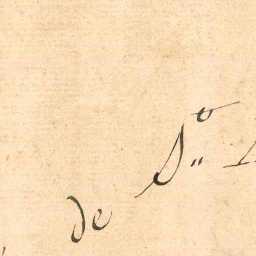 de S.to